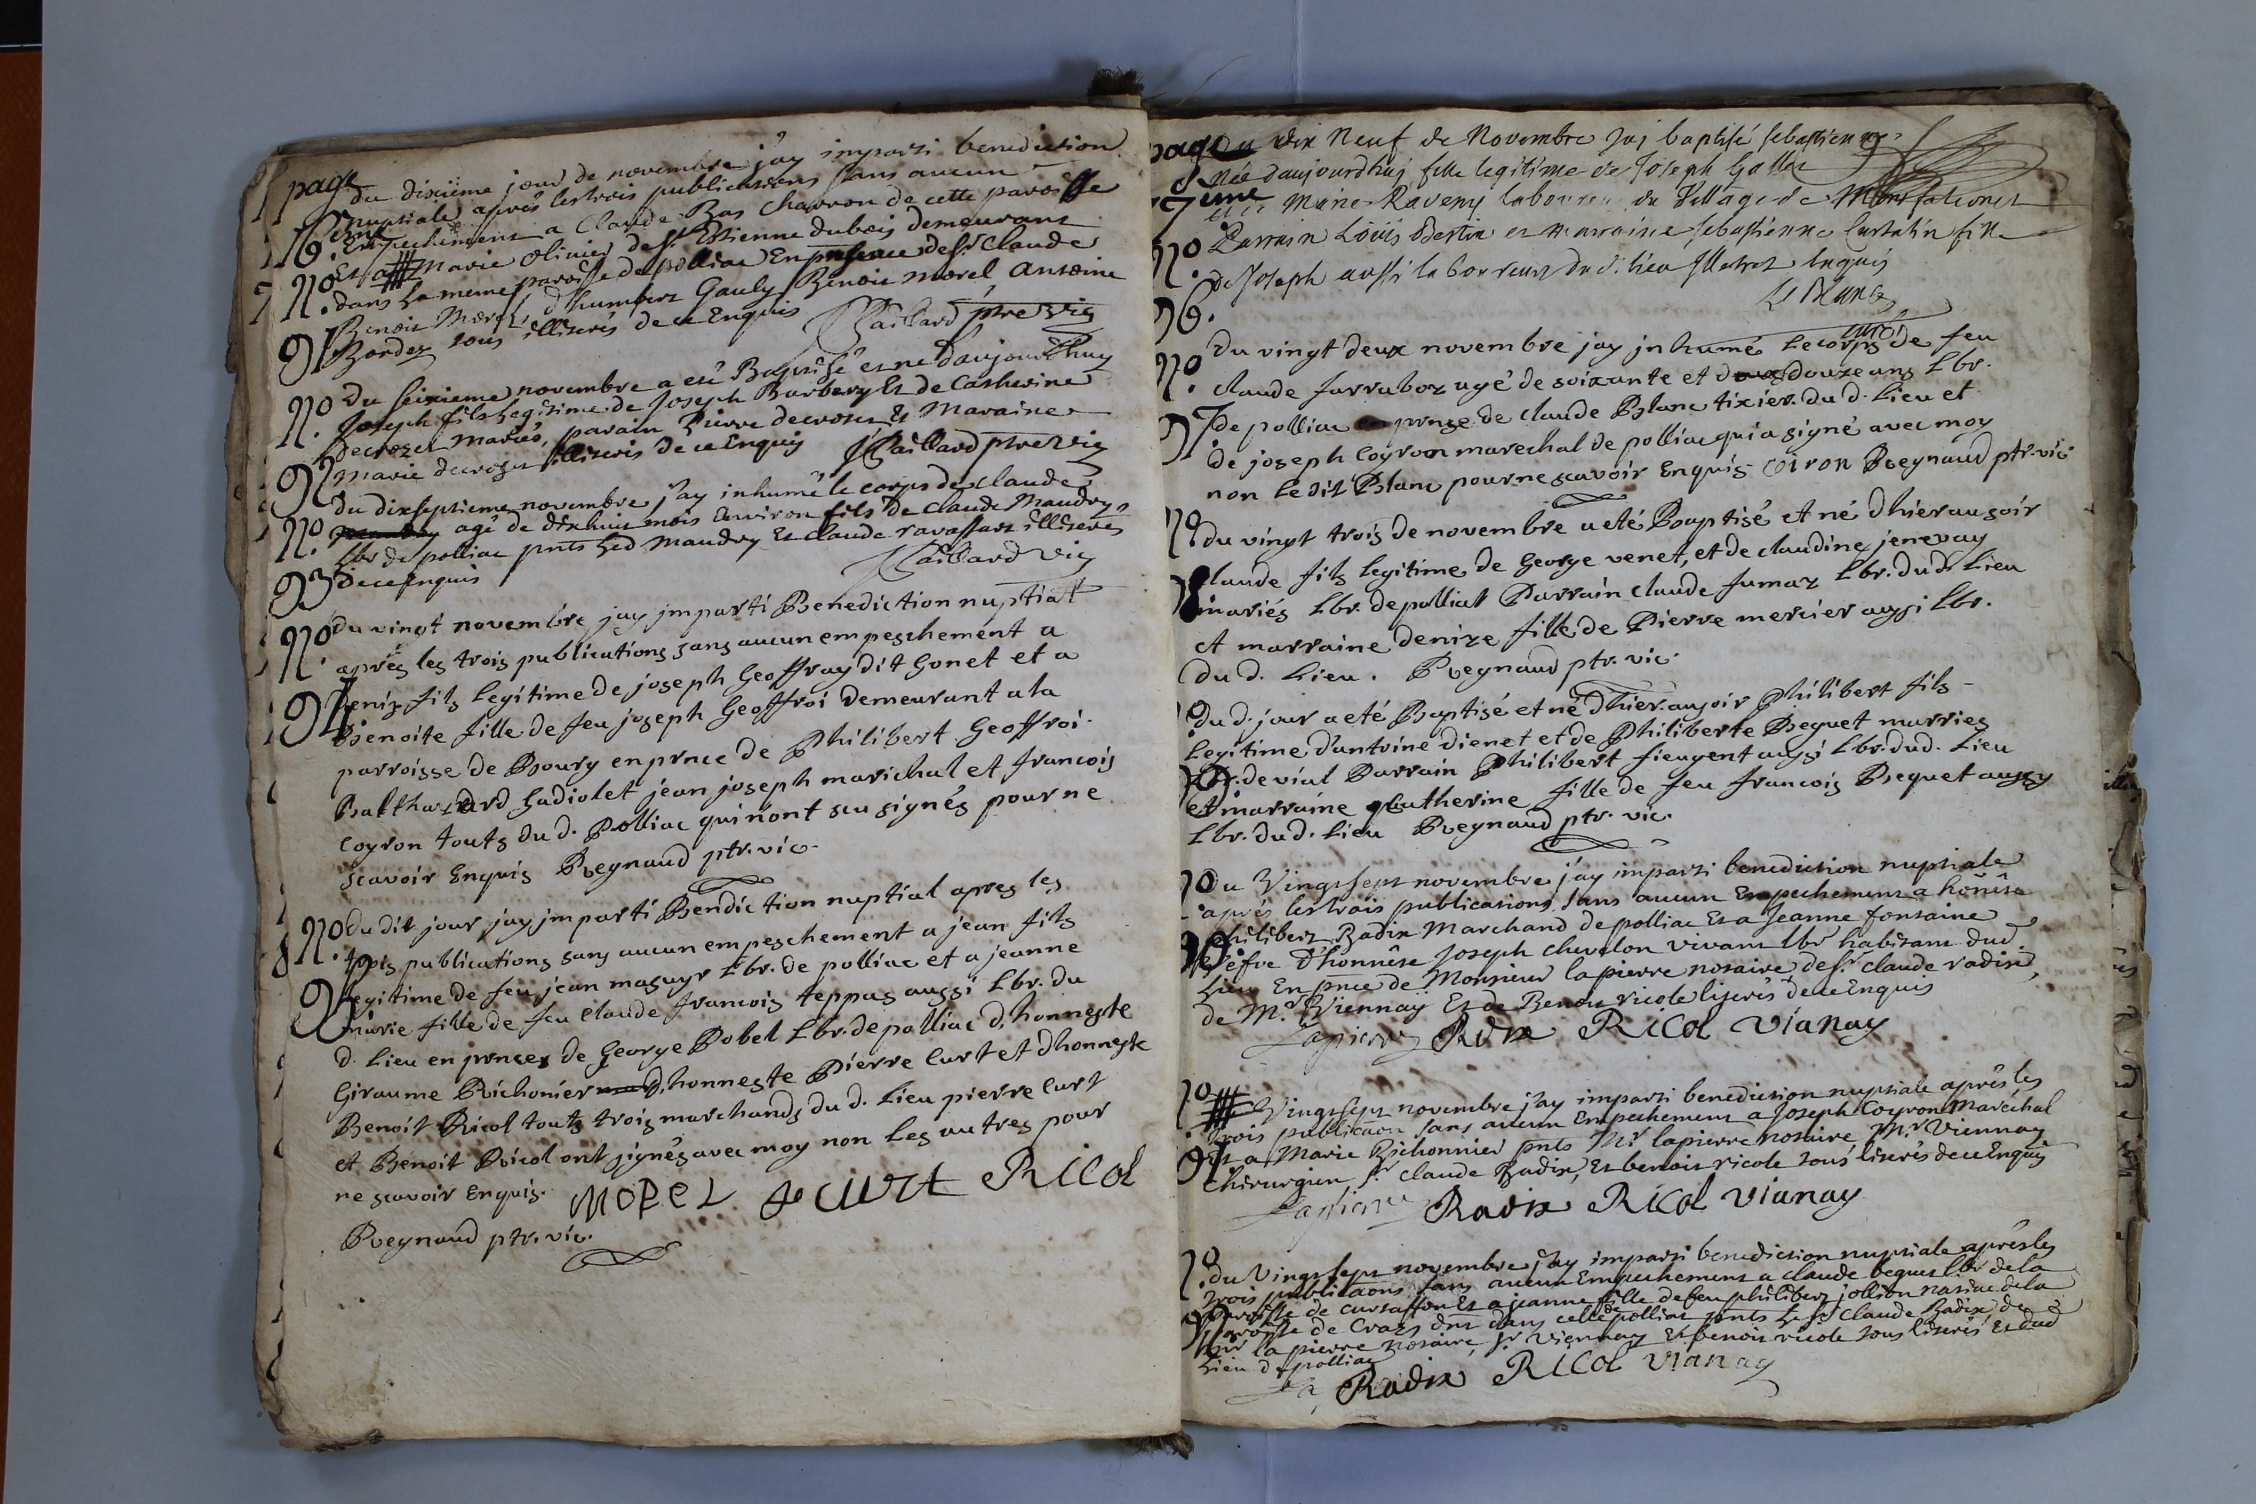 page
16.eme
Du dixiême jour de novembre j'ay imparti benediction
nuptiale aprés les trois publications sans aucun
Empechement a Claude Bas Charron de cette paroisse
Et a Marie Olivier de St. Estienne dubois demeurant
dans la meme paroisse de polliac En presence de Sr. Claude
Benoit Morel, d'humbert Gauly Benoit Morel, Antoine
Bordez tous illiterés de ce Enquis Paillard ptre vic
No.
91
Du seixieme novembre a eté Baptisé et né d'aujourdhuy
Joseph fils legitime de Joseph Barbery Et de Catherine
decrozet Mariés, parain Pierre decroset Et Maraine
Marie decroset illiterés de ce Enquis Paillard ptre vic
No.
92
Du dixseptieme novembre j'ay inhumé le corps de claude
agé de dixhuit mois Environ fils de claude Maudry
Lbr de polliac pnts led Maudry Et claude ravassart illiterés
de ce Enquis Paillard vic
No.
93
Du vingt novembre jay jmparti Benediction nuptiall
apres les trois publications sans aucun empeschement a
Deniz fils legitime de joseph Geoffray dit Gonet et a
Benoite fille de feu joseph Geoffroi demeurant a la
parroisse de Bourg en prnce de Philibert Geoffroi
Balthazard Gadiolet jean joseph marichal et francois
Coyron touts du d. Polliac qui n'ont scu signés pour ne
scavoir Enquis Reynaud ptr. vic.
No.
94
Du dit jour jay jmparti Bendiction nuptial apres les
trois publications sans aucun empeschement a jean fils
legitime de feu jean maguyr Lbr. de polliac et a jeanne
marie fille de feu claude francois teppas aussi Lbr. du
d. Lieu en prnces de George Bobel Lbr. de polliac d'honneste
Giraume Richonier d'honneste Pierre Curt et dhonneste
Benoit Ricol touts trois marchands du d. Lieu pierre curt
et Benoit Ricol ont signés avec moy non les autres pour
ne scavoir Enquis. MOREL curt RICOL
Reynaud ptr. vic.
No.
page
17eme
Du dix Neuf de Novembre Jai baptisé sebastienne
Née daujourdhuj fille legitime de Joseph Gallet
et de Marie Raveny laboureur du Village de Montfalconet
Parrain Loüis Bertin et marraine sebastienne Curtalin fille
de Joseph aussi laboureur du d. lieu Illetrez Enquis
Le Blanc
curé
No.
96.
Du vingt deux novembre jay jnhumé le corps de feu
claude farrabox agé de soixante et douze ans Lbr.
de polliac prnce de claude Blanc tixier. du d. Lieu et
de joseph Coyron marechal de polliac qui a signé avec moy
non Le dit Blanc pour ne scavoir Enquis COIRON Reynaud ptr. vic
No.
97
Du vingt trois de novembre a eté Baptisé et né d'hier au soir
Claude fils legitime de George venet, et de claudine jenevay
mariés Lbr. de polliat Parrain claude fumaz Lbr. du d. Lieu
et marraine denize fille de Pierre mercier aussi Lbr.
du d. Lieu. Reynaud ptr. vic.
No.
98
du d. jour a eté Baptisé et né d'hier au soir Philibert fils
Legitime d'antoine dienet et de Philiberte Bequet marries
Lbr. de vial Parrain Philibert fieugent aussi Lbr. du d. Lieu
et marraine Catherine fille de feu francois Bequet aussy
Lbr. du d. Lieu Reynaud ptr. vic.
No.
Du Vingtsept novembre j'ay imparti benediction nuptiale
aprés les trois publications sans aucun Empechement a honête
philibert Radix Marchand de polliac Et a Jeanne fontaine
vefve d'honnête Joseph chevalon vivant lbr habitant dud.
Lieu En pnce de Monsieur lapierre notaire, de Sr. claude radix,
de Mr. Viennay Et de Benoit ricole literés de ce Enquis
Lapierre Radix RICOL Vianay
No.
Vingtsept novembre j'ay imparti benediction nuptiale aprés les
trois publicaon sans aucun Empechement a Joseph Coyron Maréchal
Et a Marie Richonnier pnts Mr. lapierre notaire, Mr. Viennay
chirurgien, Sr. Claude Radix, Et benoit ricole tous literés de ce Enquis
Lapierre Radix RICOL Vianay
No.
du Vingtsept novembre j'ay imparti benediction nuptiale aprés les
trois publicaons sans aucun Empechement a claude bequet lbr de la
paroisse de curtaffon Et a jeanne fille de feu philibert jollion native de la
paroisse de Cras dnt dans celle de polliat pnts le Sr Claude Radix,
Mr lapierre notaire, Sr. Viennay Et benoit ricole tous literés Et dud
Lieu de polliac
La Radix RICOL Vianay